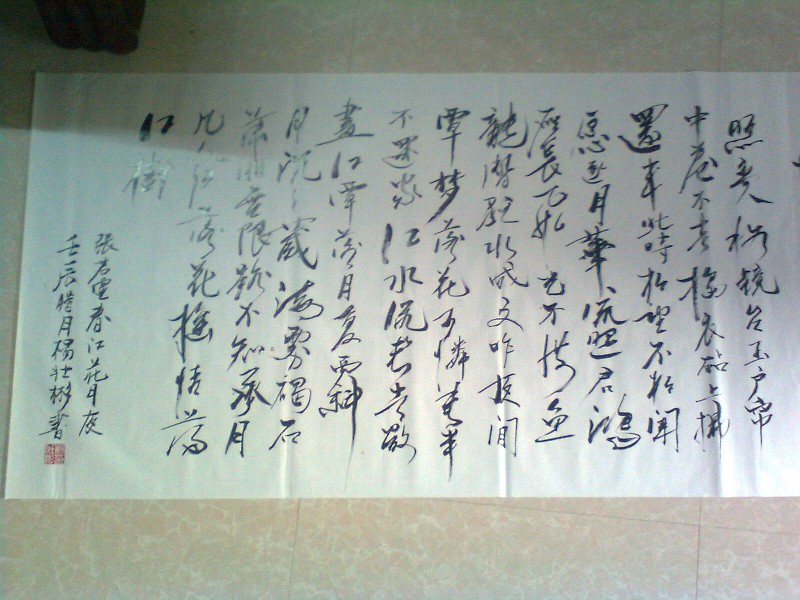 照离人妆镜台玉户帘
中卷不去捣衣砧上拂
還来此时相望不相闻
愿逐月華流照君鸿
雁长飞光不度鱼
龍潜躍水成文昨夜闲
潭梦落花可憐春半
不還家江水流春去欲
盡江潭落月复西斜
月沉沉藏海雾碣石
潇湘无限路不知乘月
几人归落花摇情满
江樹
张若虚春江花月夜
壬辰腊月杨壮彬書